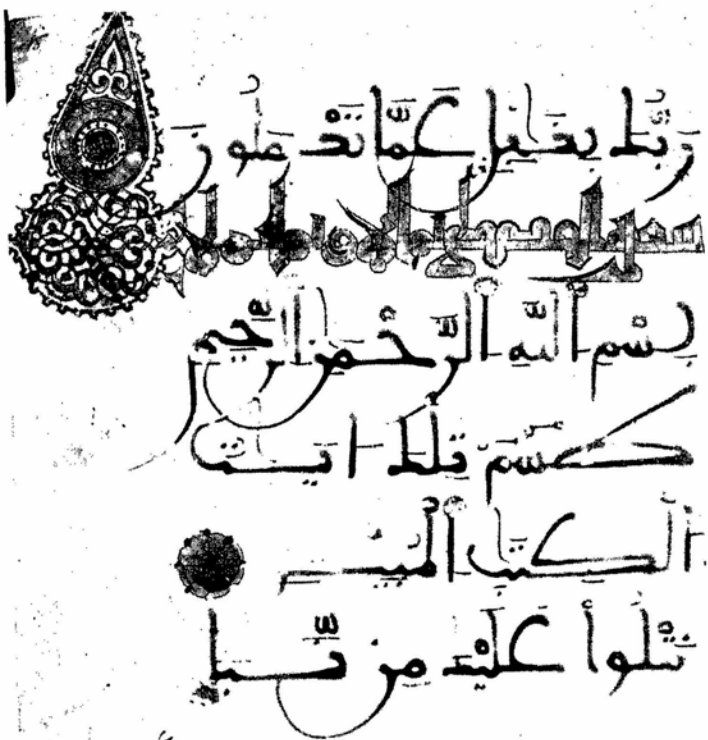 رَبُّكَ بِغَٰفِلٍ عَمَّا تَعْمَلُونَ
بِسْمِ ٱللَّهِ ٱلرَّحْمَٰنِ ٱلرَّحِيمِ
طسٓمٓ تِلْكَ ءَايَٰتُ
ٱلْكِتَٰبِ ٱلْمُبِينِ
نَتْلُوا۟ عَلَيْكَ مِن نَّبَإِ